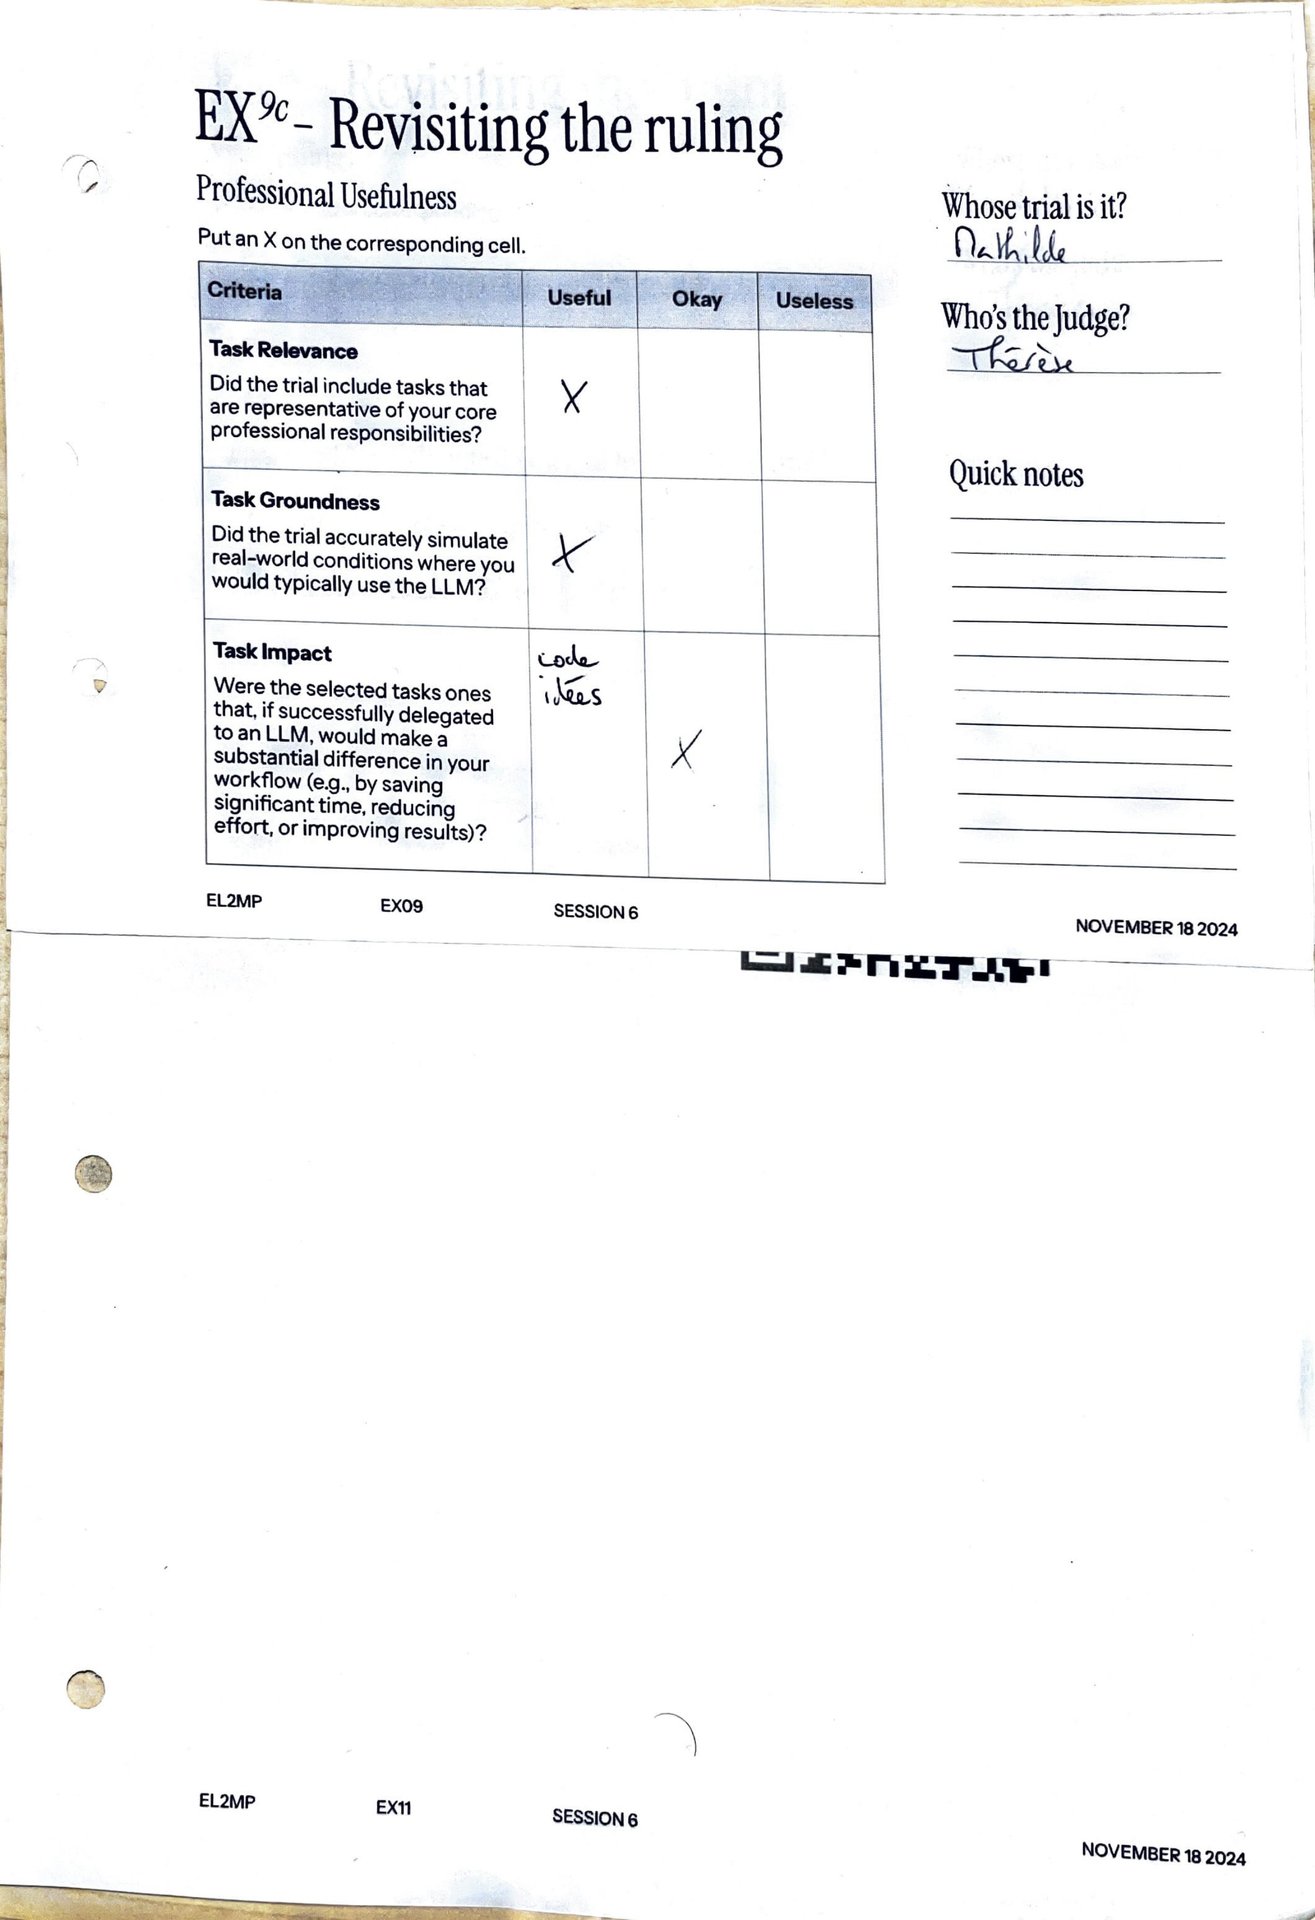 EX9c – Revisiting the ruling
Professional Usefulness
Put an X on the corresponding cell.
Whose trial is it?
Mathilde
Who's the Judge?
Thérèse
Quick notes
Criteria Useful Okay Useless
Task Relevance
Did the trial include tasks that
are representative of your core
professional responsibilities?
X
Task Groundness
Did the trial accurately simulate
real-world conditions where you
would typically use the LLM?
X
Task Impact
Were the selected tasks ones
that, if successfully delegated
to an LLM, would make a
substantial difference in your
workflow (e.g., by saving
significant time, reducing
effort, or improving results)?
code
idées
X
EL2MP EX09 SESSION 6 NOVEMBER 18 2024
EL2MP EX11 SESSION 6 NOVEMBER 18 2024